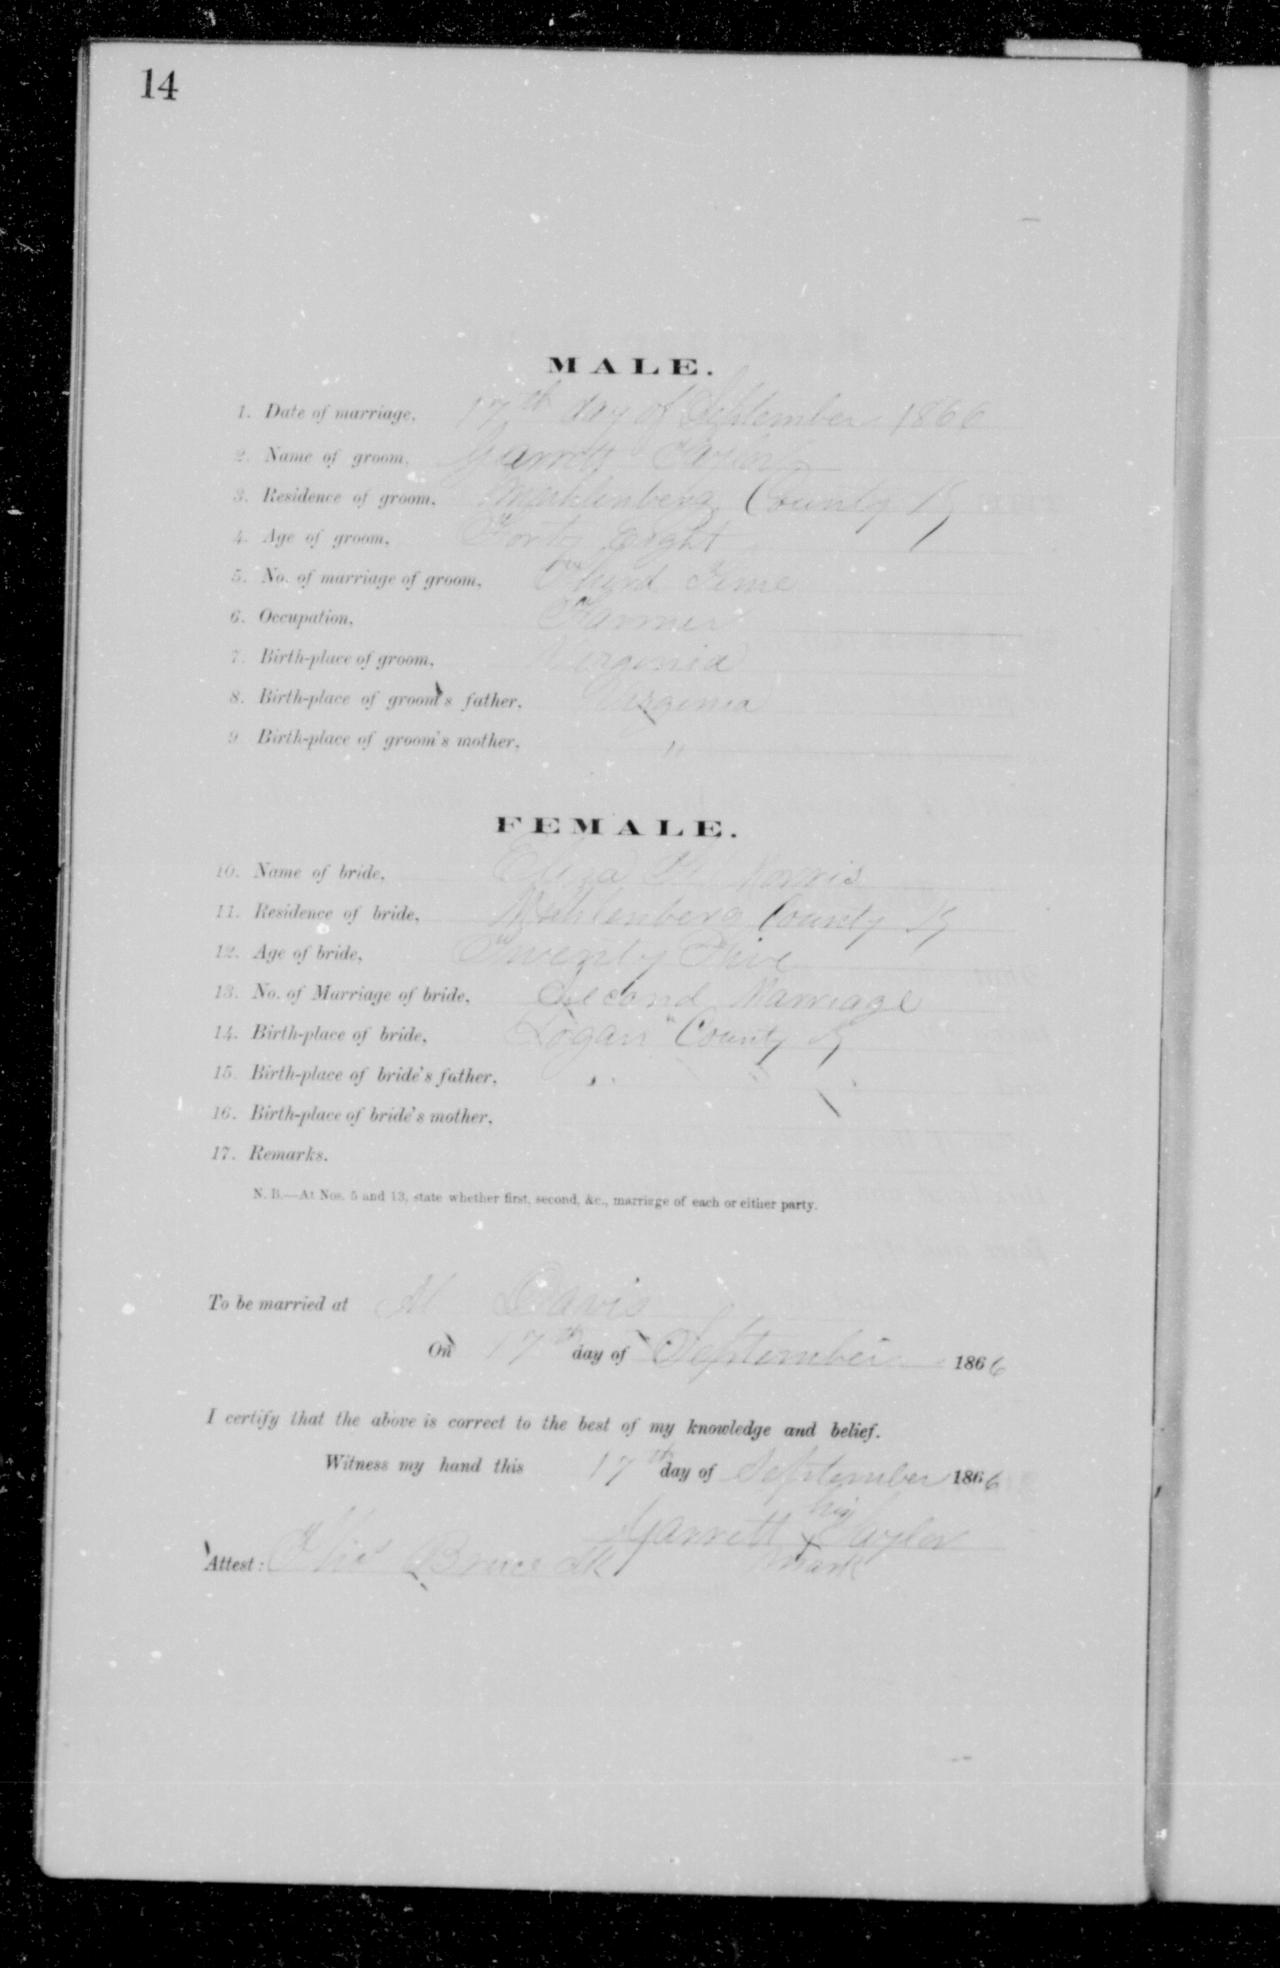 14
MALE.
1. Date of marriage, 17th day of September 1866
2. Name of groom, Garrett Taylor
3. Residence of groom, Muhlenberg County Ky
4. Age of groom, Forty Eight
5. No. of marriage of groom, Third Time
6. Occupation, Farmer
7. Birth-place of groom, Virginia
8. Birth-place of groom's father, Virginia
9. Birth-place of groom's mother, "
FEMALE.
10. Name of bride, Eliza Norris
11. Residence of bride, Muhlenberg County Ky
12. Age of bride, Twenty Five
13. No. of Marriage of bride, Second Marriage
14. Birth-place of bride, Logan County Ky
15. Birth-place of bride's father, "
16. Birth-place of bride's mother,
17. Remarks.
N. B.—At Nos. 5 and 13, state whether first, second, &c., marriage of each or either party.
To be married at M Davis
On 17th day of September 1866
I certify that the above is correct to the best of my knowledge and belief.
Witness my hand this 17th day of September 1866
his
Garrett x Taylor
Attest: Bruce mark